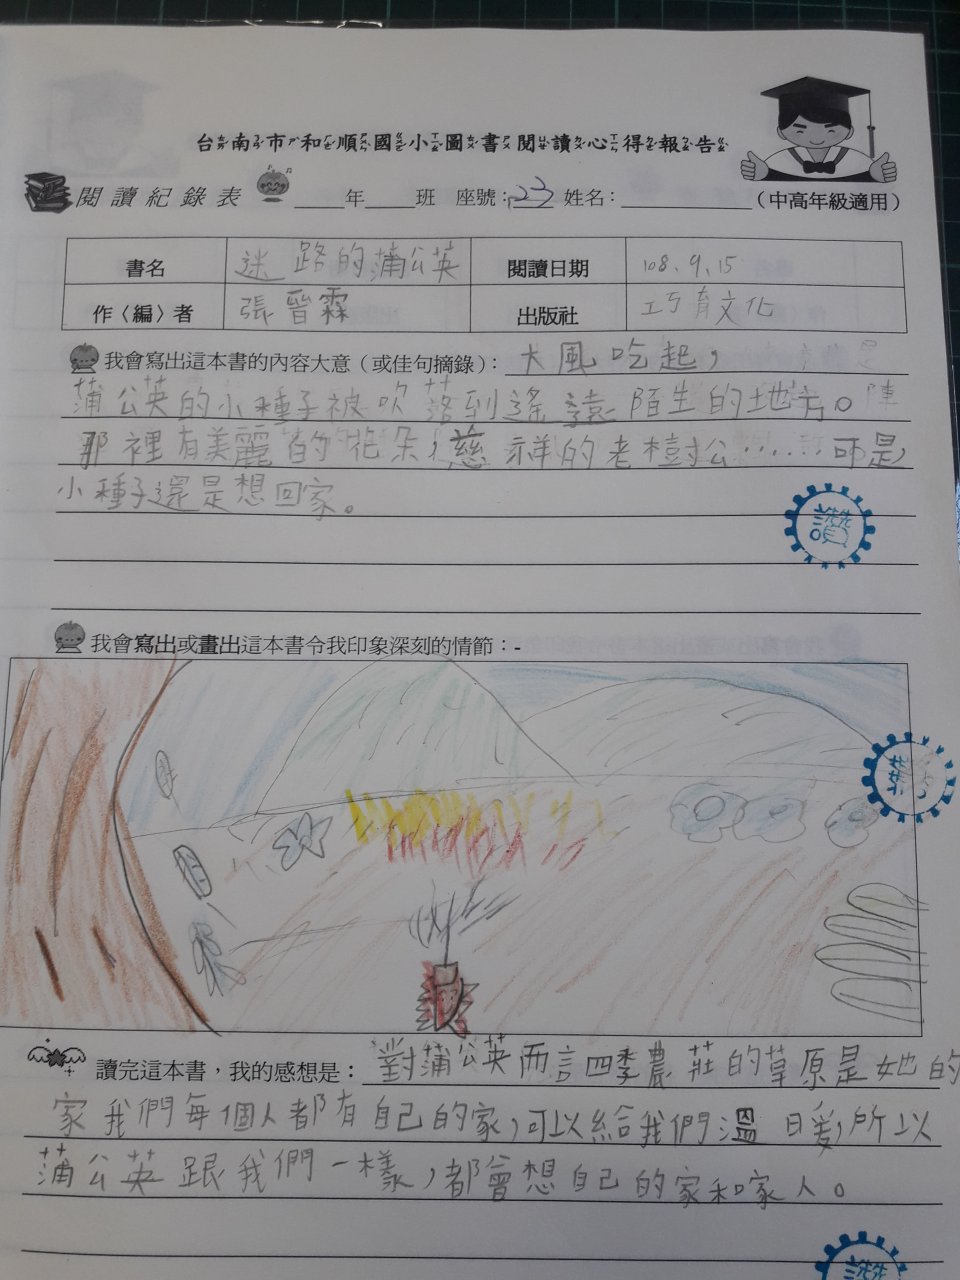 台南市和順國小圖書閱讀心得報告
閱讀紀錄表 ____年____班 座號:23 姓名:____________(中高年級適用)
書名 迷路的蒲公英 閱讀日期 108、9、15
作〈編〉者 張晉霖 出版社 巧育文化
我會寫出這本書的內容大意（或佳句摘錄）：大風吃起，
蒲公英的小種子被吹落到遙遠陌生的地方。
那裡有美麗的花朵、慈祥的老樹公……可是，
小種子還是想回家。
讚
我會寫出或畫出這本書令我印象深刻的情節：-
讚
讀完這本書，我的感想是：對蒲公英而言四季農莊的草原是她的
家我們每個人都有自己的家，可以給我們溫日暖，所以
蒲公英跟我們一樣，都會想自己的家和家人。
讚